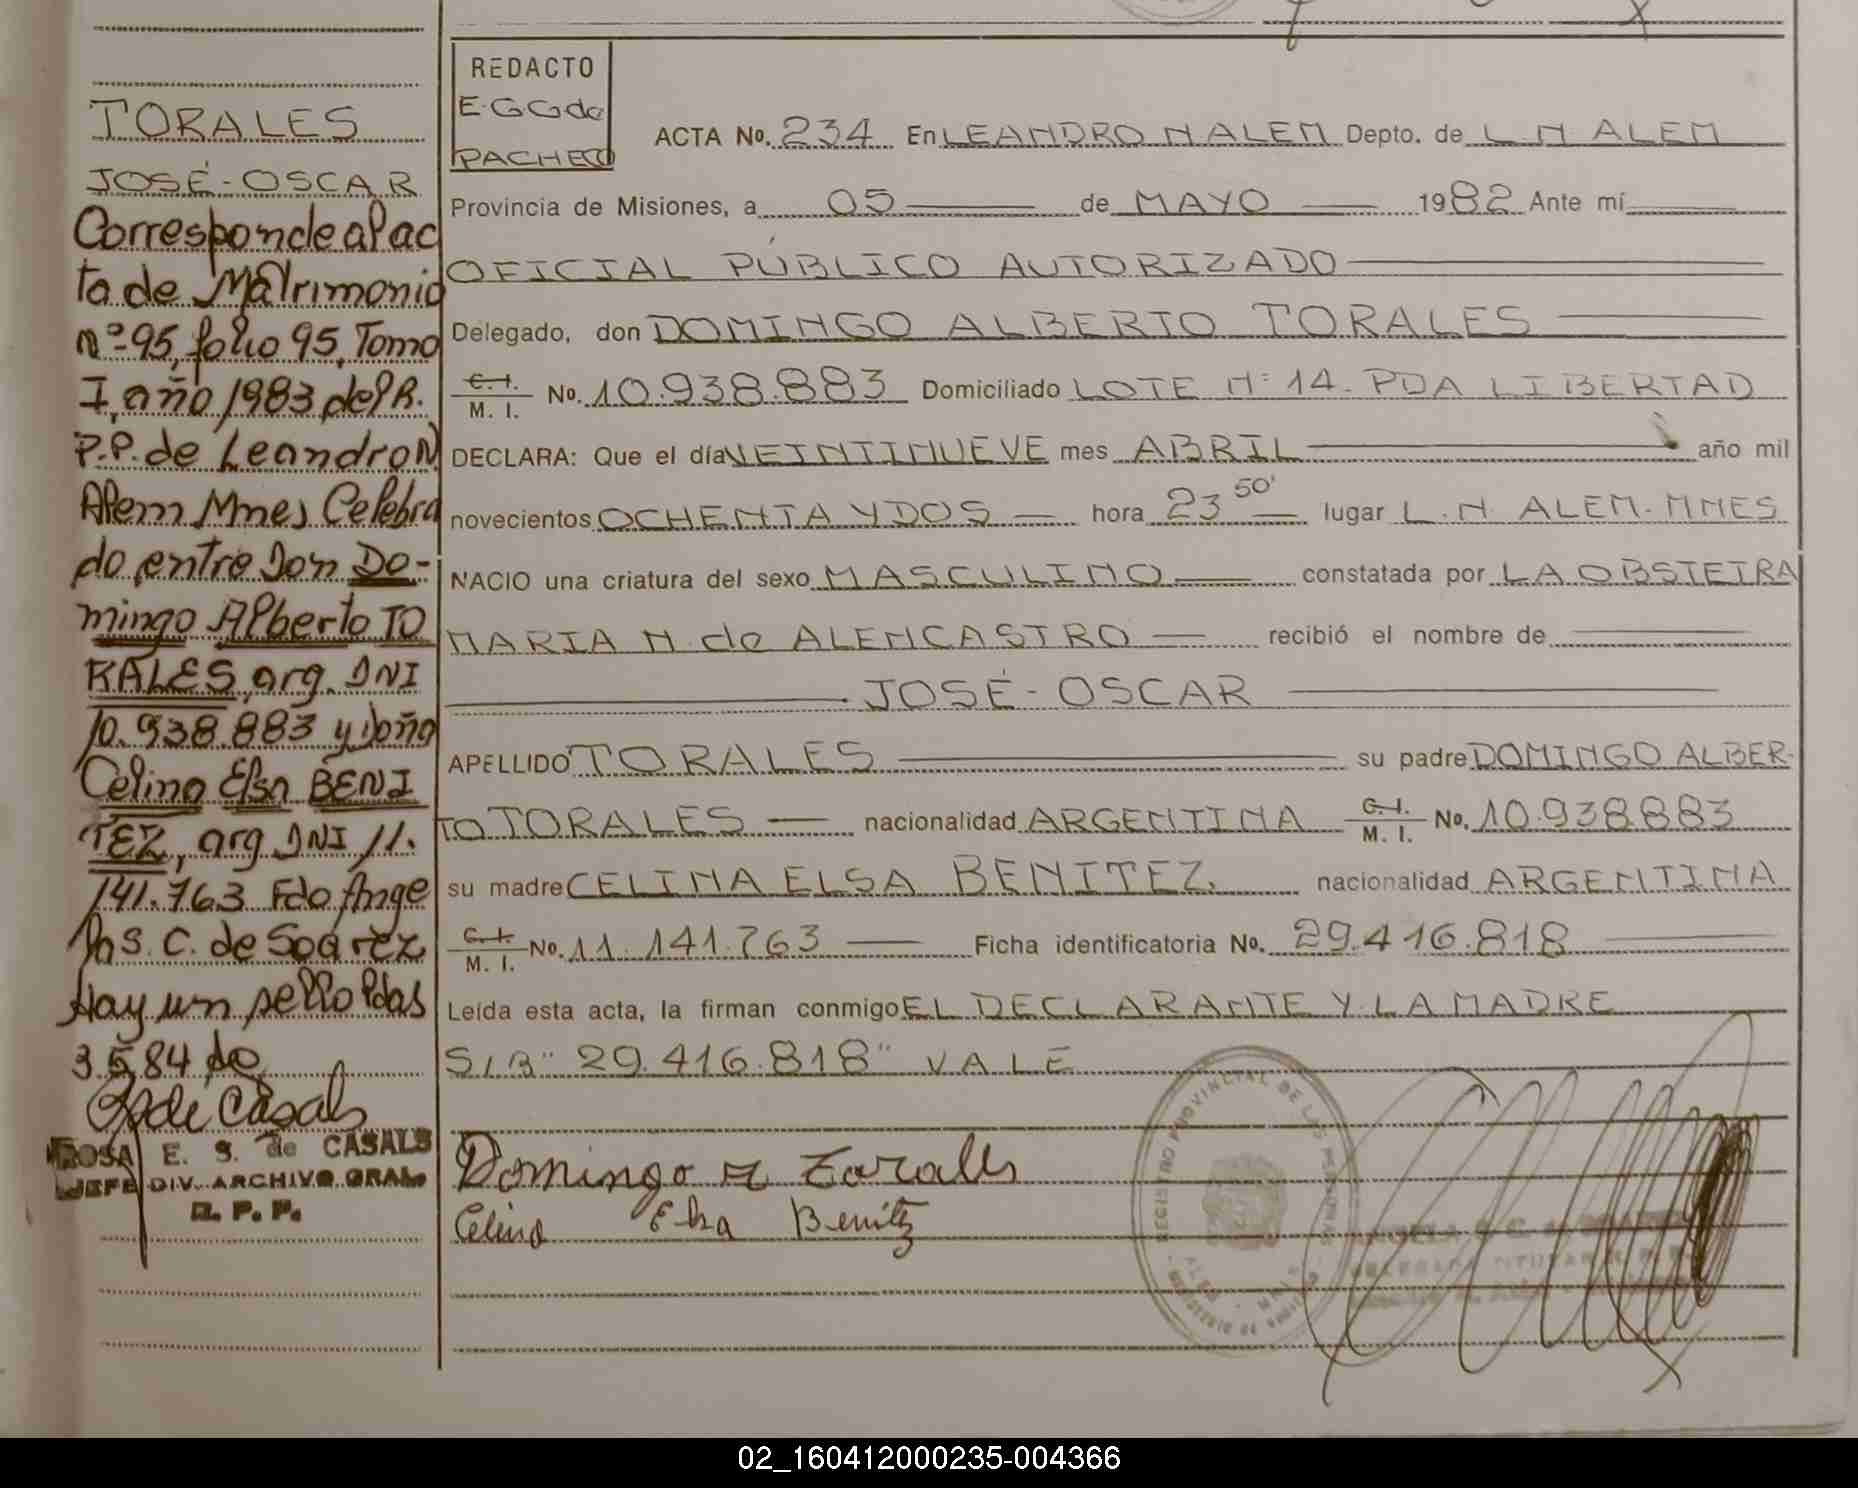 TORALES
JOSÉ-OSCAR
Corresponde al ac
ta de Matrimonio
nº 95, folio 95, Tomo
I, año 1983 del R.
P.P. de Leandro N
Alem Mnes Celebra
do entre Don Do-
mingo Alberto TO
RALES, arg. DNI
10.938.883 y doña
Celina Elsa BENI
TEZ, arg DNI 11.
141.763 Fdo Ange
la S. C. de Soarez
Hay un sello Pdas
3.5.84 de
de Casals
ROSA E. S. de CASALS
JEFE DIV. ARCHIVO GRAL.
R. P. P.
REDACTO
E.G.G de
PACHECO
ACTA No. 234 En LEANDRO N ALEM Depto. de L N ALEM
Provincia de Misiones, a 05 de MAYO 1982 Ante mí
OFICIAL PÚBLICO AUTORIZADO
Delegado, don DOMINGO ALBERTO TORALES
C. I. / M. I. No. 10.938.883 Domiciliado LOTE Nº 14. PDA LIBERTAD
DECLARA: Que el día VEINTINUEVE mes ABRIL año mil
novecientos OCHENTA Y DOS hora 23 50' lugar L. N ALEM. MNES
NACIO una criatura del sexo MASCULINO constatada por LA OBSTETRA
MARIA N. de ALENCASTRO recibió el nombre de
JOSÉ-OSCAR
APELLIDO TORALES su padre DOMINGO ALBER-
TO TORALES nacionalidad ARGENTINA C. I. / M. I. No. 10.938.883
su madre CELINA ELSA BENITEZ. nacionalidad ARGENTINA
C. I. / M. I. No. 11.141.763 Ficha identificatoria No. 29.416.818
Leída esta acta, la firman conmigo EL DECLARANTE Y LA MADRE
S/B "29.416.818" VALE
Domingo A Torales
Celina Elsa Benitez
REGISTRO PROVINCIAL DE LAS PERSONAS
ANGELA S. C. de SOAREZ
DELEGADA TITULAR R. P. P.
02_160412000235-004366